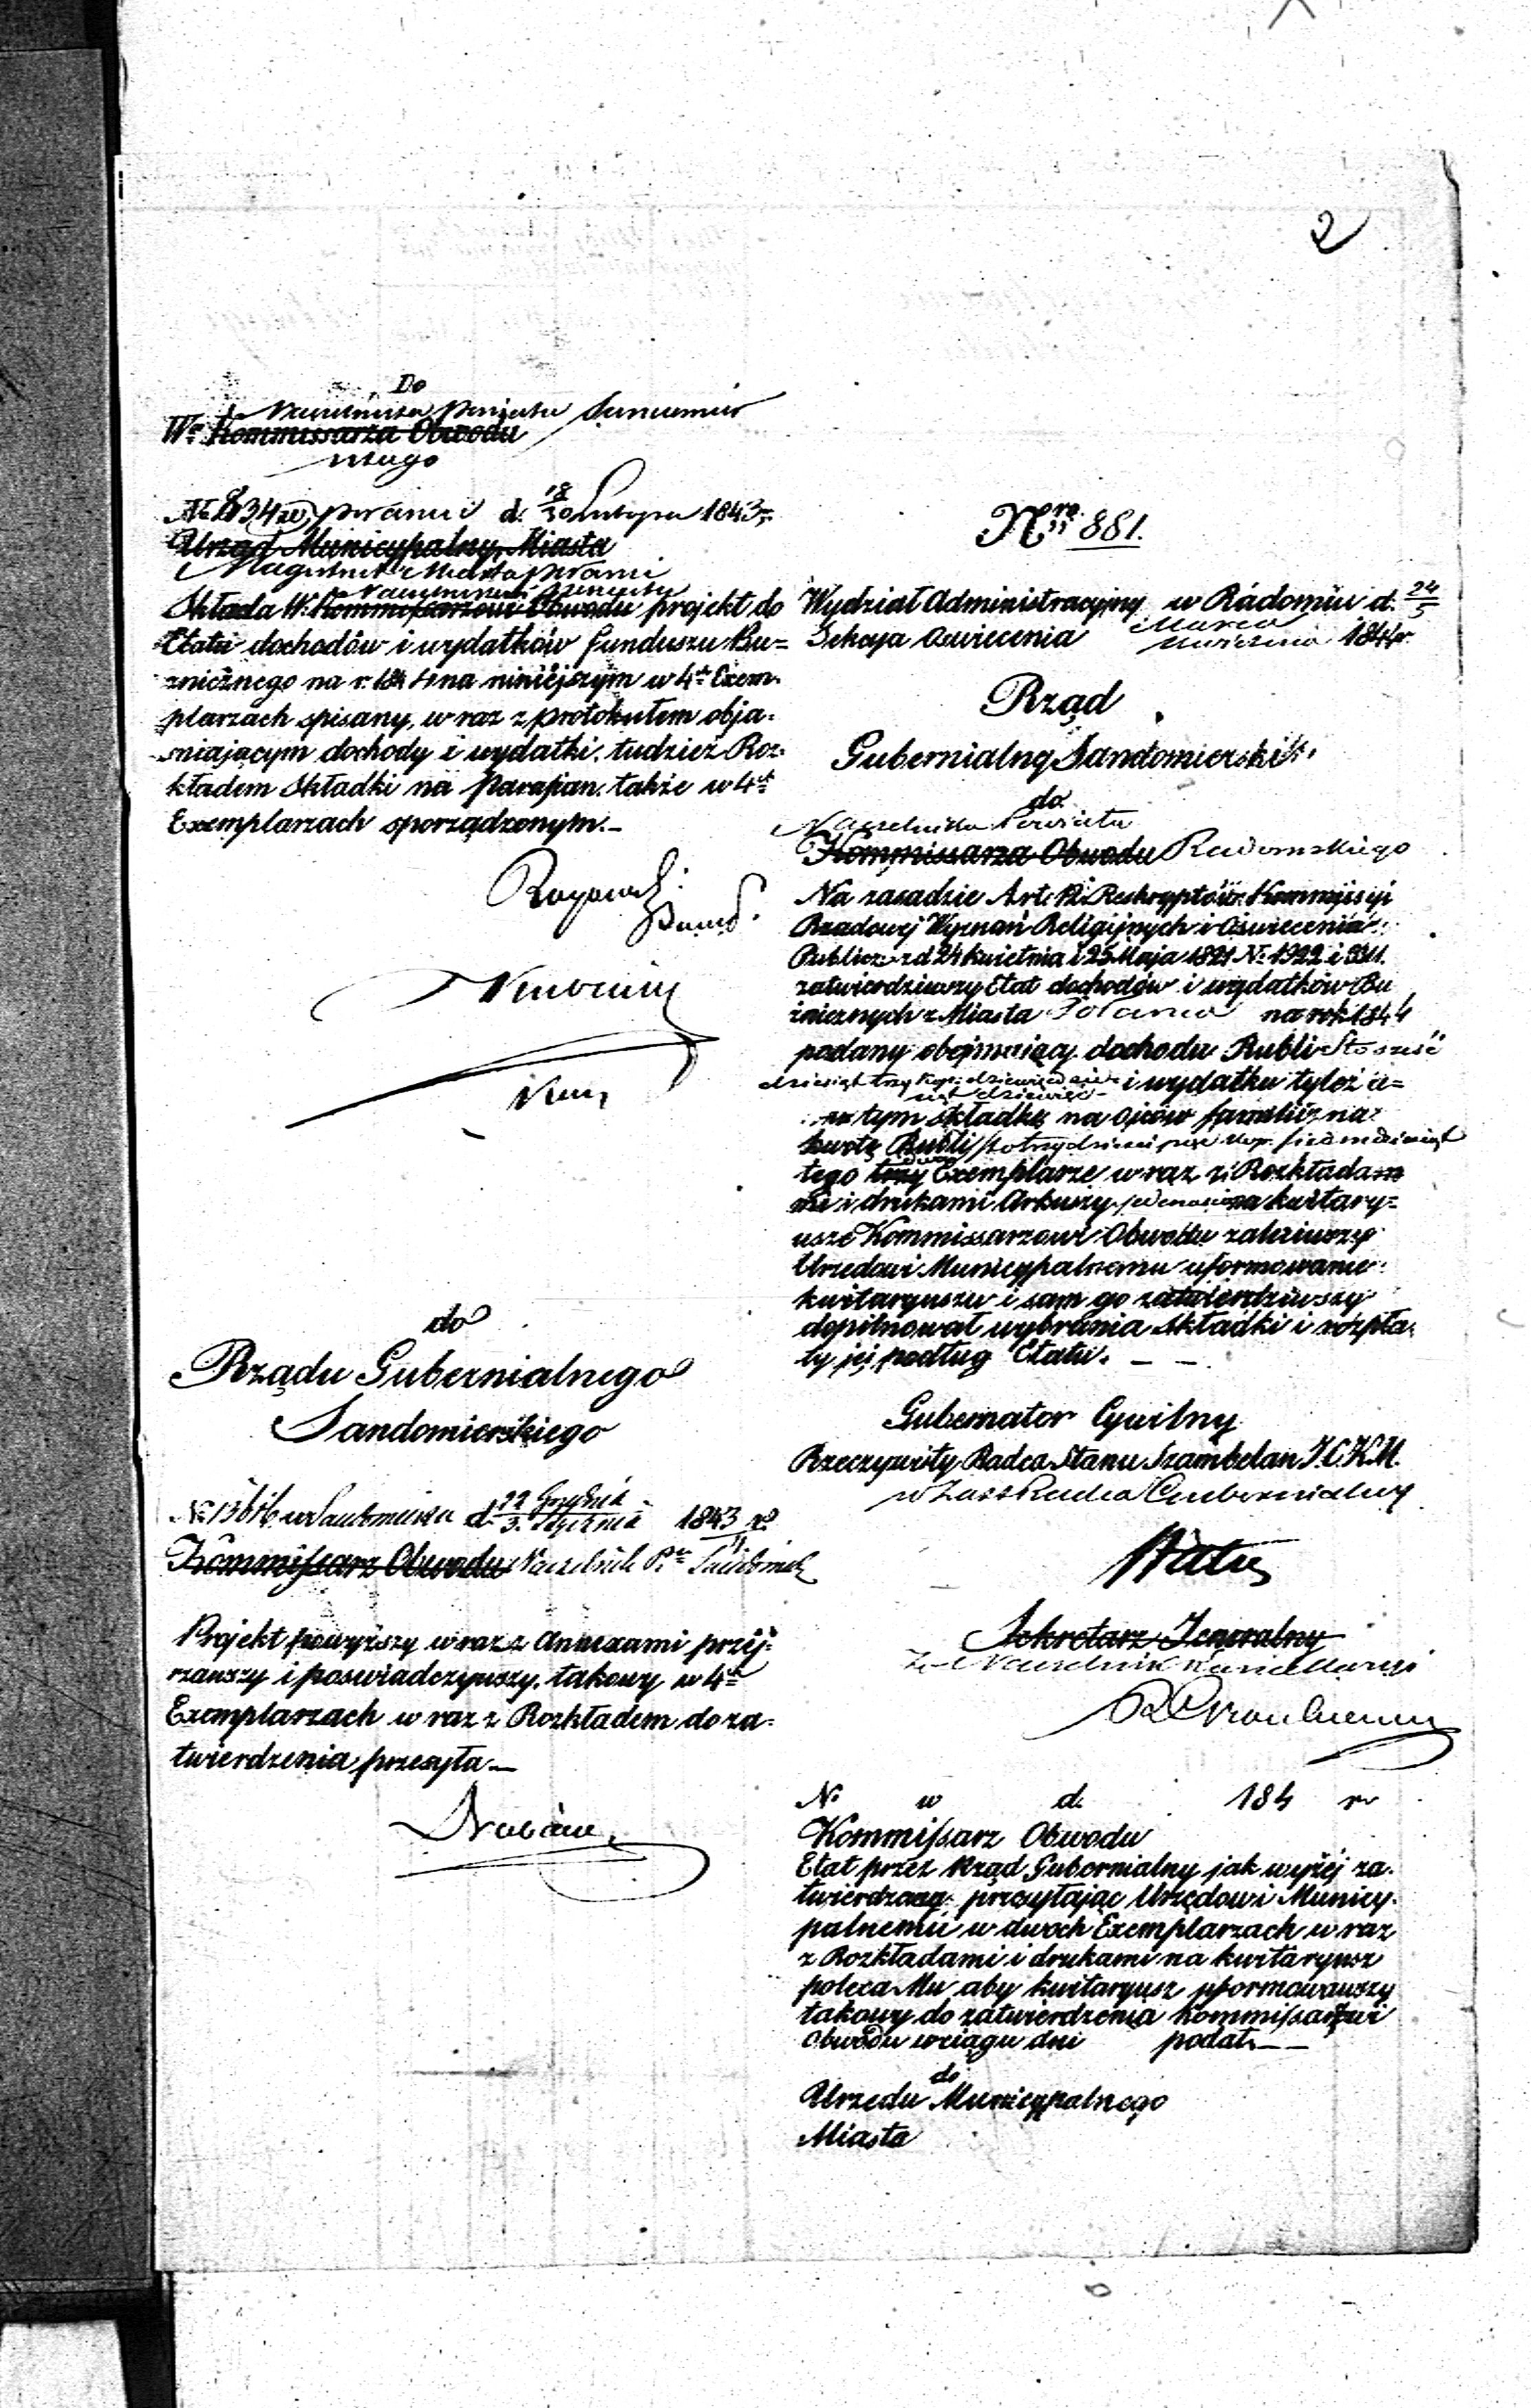 2
Do
Naczelnika Powiatu Sandomir
W. Kommissarza Obwodu
skiego
No 834 d. 18/30 Listopa 1843 r.
Urząd Municypalny Miasta
Magistrat Miasta
Składa W. Kommissarzowi Obwodu projekt do
Etatu dochodów i wydatków funduszu Bu=
żnicznego na r. 184 4 na niniejszym w 4ch Exem-
plarzach spisany, wraz z protokułem obja-
śniającym dochody i wydatki, tudzież Roz-
kładem Składki na Parafian, także w 4ch
Exemplarzach sporządzonym.—
do
Rządu Gubernialnego
Sandomierskiego
No d. 22 Grudnia / 3 Stycznia 1843 r.
Kommissarz Obwodu Naczelnik
Projekt powyższy wraz z Annexami przej-
rzawszy i poswiadczywszy, takowy w 4ch
Exemplarzach wraz z Rozkładem do za-
twierdzenia przesyła—
Nro 881.
Wydział Administracyjny w Radomiu d. 24/5
Sekcya Oswiecenia Marca 184 r.
Rząd
Gubernialny Sandomierski
do
Naczelnika Powiatu
Kommissarza Obwodu Radomskiego
Na zasadzie Art. 12. Reskryptów Kommissyi
Rządowej Wyznań Religijnych i Oświecenia
Publicz. z d 24 Kwietnia i 25 Maja 1821 No 1322 i
zatwierdziwszy Etat dochodów i wydatków Bu
żnicznych z Miasta Połańca na rok 1844
podany obejmujący dochodu Rubli Sto sześć
dziesiąt trzy kop. dziewięćdzie- i wydatku tyleż a=
siąt dziewięć
w tym składkę na ojców familii, na
kwotę Rubli sto trzydzieści kop. siedmdziesiąt
dwa
tego trzy Exemplarze wraz z Rozkłada
mi i drukami Arkuszy na kwitary=
usze Kommissarzowi Obwodu zaleciwszy
Urzędowi Municypalnemu uformowanie
kwitaryuszu i sam go zatwierdziwszy
dopilnował wybrania składki i rozpła-
ty jej podług Etatu. — —
Gubernator Cywilny
Rzeczywisty Radca Stanu Szambelan J.C.K.M.
w Zast Radca Gubernialny
Sekretarz Jeneralny
Naczelnik Kancellaryi
No w d. 184 r
Kommissarz Obwodu
Etat przez Rząd Gubernialny jak wyżej za-
twierdzony przesyłając Urzędowi Municy-
palnemu w dwóch Exemplarzach wraz
z Rozkładami i drukami na kwitaryusz
poleca Mu aby kwitaryusz uformowawszy
takowy do zatwierdzenia Kommissarzowi
Obwodu wciągu dni podał.— —
do
Urzędu Municypalnego
Miasta